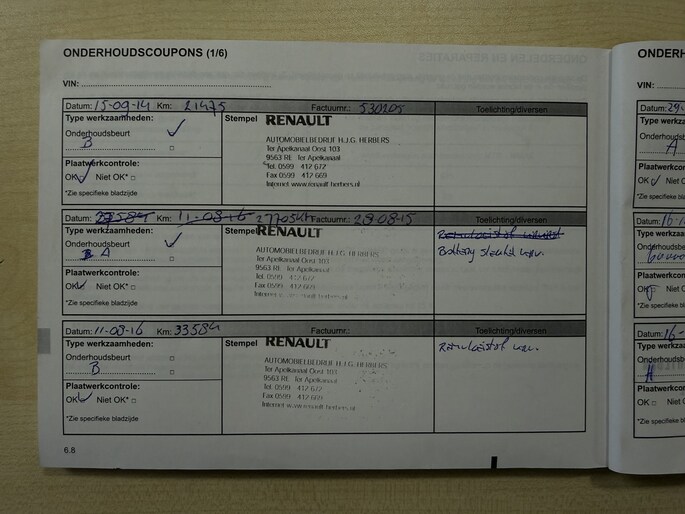 ONDERHOUDSCOUPONS (1/6)
VIN:
Datum: 15-09-14 Km: 21475 Factuurnr.: 530205 Toelichting/diversen
Type werkzaamheden: Stempel RENAULT
Onderhoudsbeurt
B
AUTOMOBIELBEDRIJF H.J.G. HERBERS
Ter Apelkanaal Oost 103
9563 RE Ter Apelkanaal
Tel. 0599 412 672
Fax 0599 412 669
Internet www.renault.herbers.nl
Plaatwerkcontrole:
OK Niet OK*
*Zie specifieke bladzijde
Datum: 11-08-16 27705KM Factuurnr.: 28-08-15 Toelichting/diversen
Type werkzaamheden: Stempel RENAULT
Onderhoudsbeurt
A
AUTOMOBIELBEDRIJF H.J.G. HERBERS
Ter Apelkanaal Oost 103
9563 RE Ter Apelkanaal
Tel. 0599 412 672
Fax 0599 412 669
Internet www.renault.herbers.nl
Battery
Plaatwerkcontrole:
OK Niet OK*
*Zie specifieke bladzijde
Datum: 11-08-16 Km: 33584 Factuurnr.: Toelichting/diversen
Type werkzaamheden: Stempel RENAULT
Onderhoudsbeurt
B
AUTOMOBIELBEDRIJF H.J.G. HERBERS
Ter Apelkanaal Oost 103
9563 RE Ter Apelkanaal
Tel. 0599 412 672
Fax 0599 412 669
Internet www.renault.herbers.nl
Plaatwerkcontrole:
OK Niet OK*
*Zie specifieke bladzijde
6.8
ONDERH
VIN:
Datum: 29-
Type werkza
Onderhoudsb
A
Plaatwerkco
OK Niet O
*Zie specifieke bla
Datum: 16-1
Type werkza
Onderhoudsbe
Plaatwerkcon
OK Niet O
*Zie specifieke bla
Datum: 16-
Type werkzaa
Onderhoudsbe
A
Plaatwerkcon
OK Niet O
*Zie specifieke bla